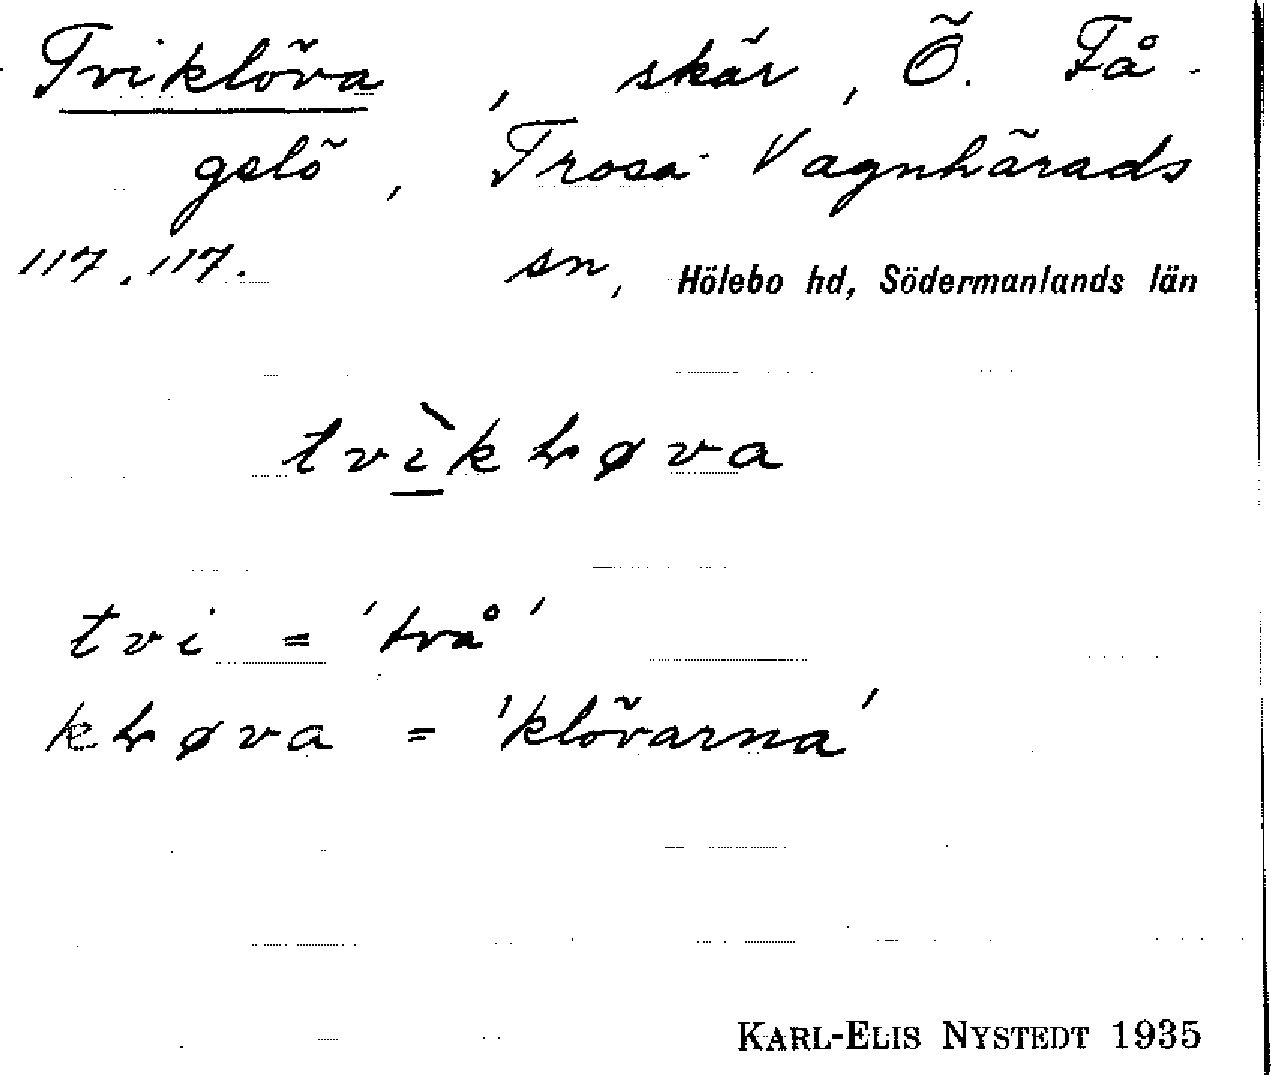 Tviklöva, skär, Ö. Få-
gelö, Trosa-Vagnhärads
117.117. sn, Hölebo hd, Södermanlands län
tvìkɫøva
tvi = 'två'
kɫøva = 'klövarna'
KARL-ELIS NYSTEDT 1935